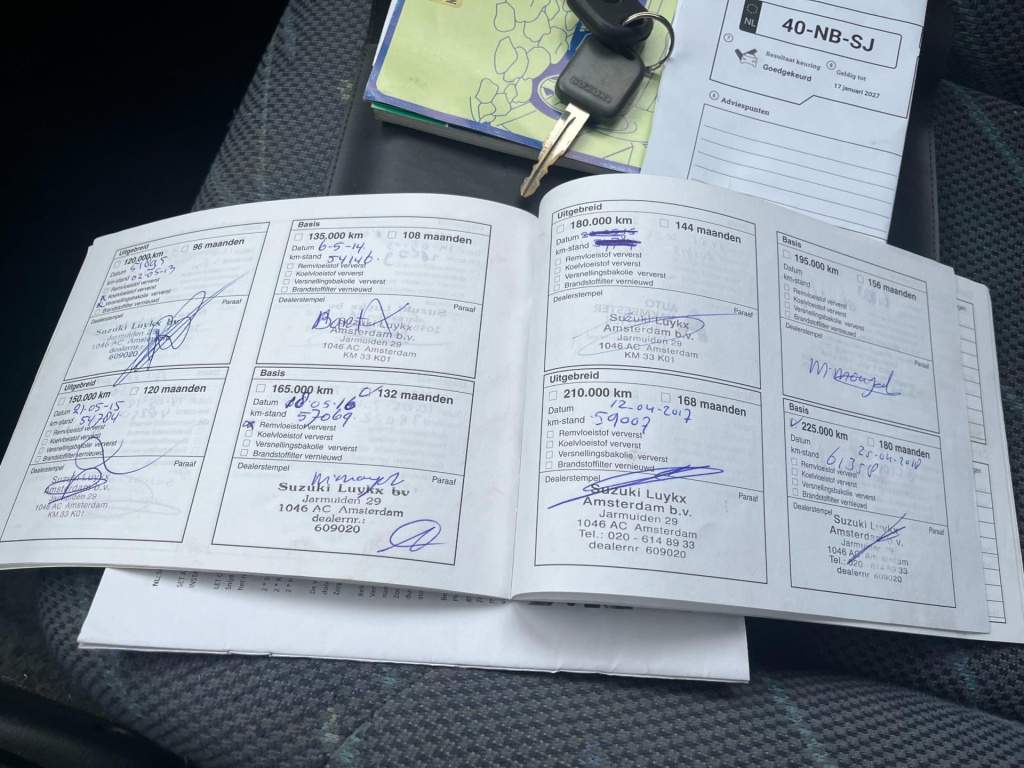 NL
40-NB-SJ
7
Resultaat keuring
Goedgekeurd
8
Geldig tot
17 januari 2027
Adviespunten
SUZUKI
Uitgebreid
120.000 km
96 maanden
Datum
51095
km-stand 02-05-13
Remvloeistof ververst
Koelvloeistof ververst
Versnellingsbakolie ververst
Brandstoffilter vernieuwd
Dealerstempel
Paraaf
Suzuki Luykx bv
Jarmuiden 29
1046 AC Amsterdam
dealernr.:
609020
Basis
135.000 km
108 maanden
Datum 6-5-14
km-stand 54146
Remvloeistof ververst
Koelvloeistof ververst
Versnellingsbakolie ververst
Brandstoffilter vernieuwd
Dealerstempel
Paraaf
Suzuki Luykx
Amsterdam b.v.
Jarmuiden 29
1046 AC Amsterdam
KM 33 K01
Uitgebreid
150.000 km
120 maanden
Datum 21-05-15
km-stand 54784
Remvloeistof ververst
Koelvloeistof ververst
Versnellingsbakolie ververst
Brandstoffilter vernieuwd
Dealerstempel
Paraaf
Suzuki Luykx
Amsterdam b.v.
Jarmuiden 29
1046 AC Amsterdam
KM 33 K01
Basis
165.000 km
132 maanden
Datum 18-05-16
km-stand 57069
Remvloeistof ververst
Koelvloeistof ververst
Versnellingsbakolie ververst
Brandstoffilter vernieuwd
Dealerstempel
Paraaf
Suzuki Luykx bv
Jarmuiden 29
1046 AC Amsterdam
dealernr.:
609020
Uitgebreid
180.000 km
144 maanden
Datum
km-stand
Remvloeistof ververst
Koelvloeistof ververst
Versnellingsbakolie ververst
Brandstoffilter vernieuwd
Dealerstempel
Paraaf
Suzuki Luykx
Amsterdam b.v.
Jarmuiden 29
1046 AC Amsterdam
KM 33 K01
Basis
195.000 km
156 maanden
Datum
km-stand
Remvloeistof ververst
Koelvloeistof ververst
Versnellingsbakolie ververst
Brandstoffilter vernieuwd
Dealerstempel
Paraaf
Uitgebreid
210.000 km
168 maanden
Datum 12-04-2017
km-stand 59007
Remvloeistof ververst
Koelvloeistof ververst
Versnellingsbakolie ververst
Brandstoffilter vernieuwd
Dealerstempel
Paraaf
Suzuki Luykx
Amsterdam b.v.
Jarmuiden 29
1046 AC Amsterdam
Tel.: 020 - 614 89 33
dealernr 609020
Basis
225.000 km
180 maanden
Datum 25-04-2018
km-stand 61358
Remvloeistof ververst
Koelvloeistof ververst
Versnellingsbakolie ververst
Brandstoffilter vernieuwd
Dealerstempel
Paraaf
Suzuki Luykx
Amsterdam b.v.
Jarmuiden 29
1046 AC Amsterdam
Tel.: 020 - 614 89 33
dealernr 609020